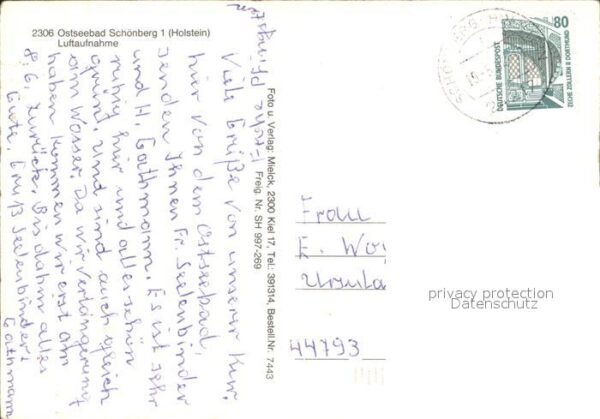 2306 Ostseebad Schönberg 1 (Holstein)
Luftaufnahme
Frohe Pfingsten
Viele Grüße von unserer Kur.
hier von dem Ostseebad,
senden Ihnen Fr. Seelenbinder
und H. Gathmann. Es ist sehr
ruhig hier und alles schön
grün. Und sind auch gleich
am Wasser. Da wir Verlängerung
haben kommen wir erst am
8.6. zurück. Bis dahin alles
Gute, Gruß Seelenbinder
Gathmann
Foto u. Verlag: Mielck, 2300 Kiel 17, Tel.: 391314, Bestell.Nr. 7443
Freig. Nr. SH 997-269
80
DEUTSCHE BUNDESPOST
ZECHE ZOLLERN II DORTMUND
Frau
E. Wo
Ursula
44793
privacy protection
Datenschutz